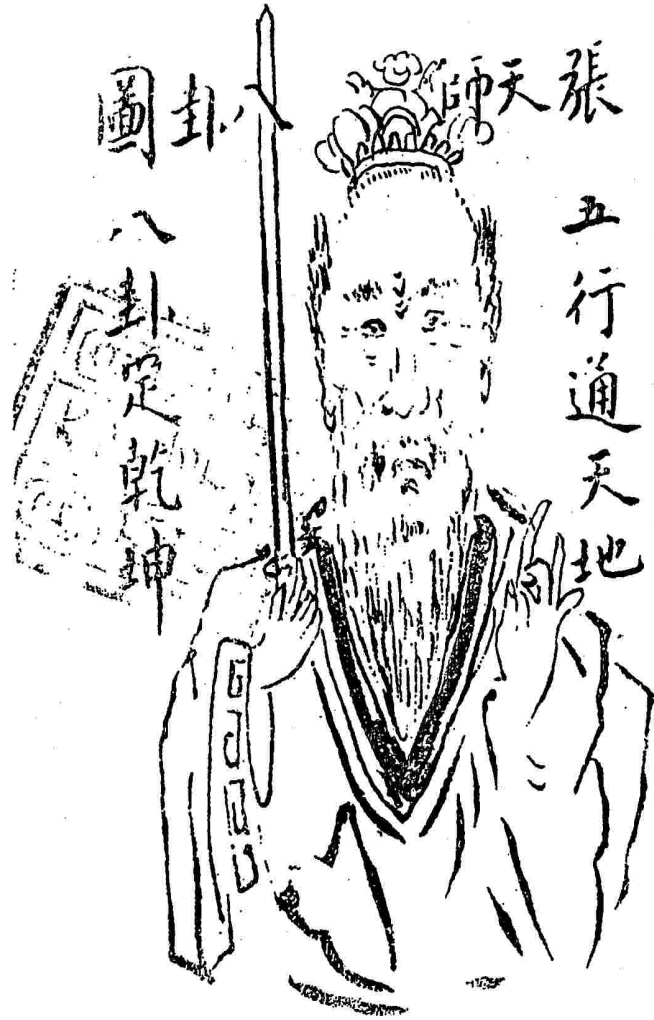 張天師八卦圖
五行通天地
八卦定乾坤